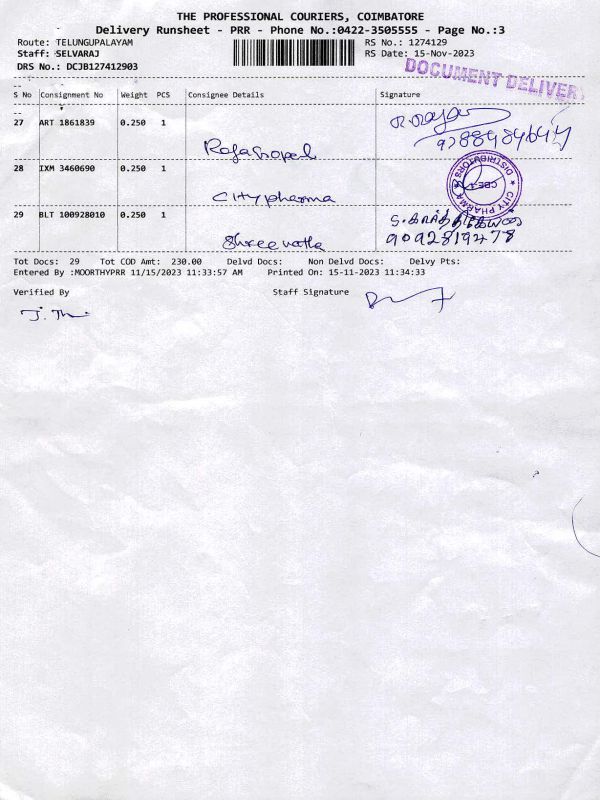 THE PROFESSIONAL COURIERS, COIMBATORE
Delivery Runsheet - PRR - Phone No.:0422-3505555 - Page No.:3
Route: TELUNGUPALAYAM RS No.: 1274129
Staff: SELVARAJ RS Date: 15-Nov-2023
DRS No.: DCJB127412903
DOCUMENT DELIVERY
S No Consignment No Weight PCS Consignee Details Signature
27 ART 1861839 0.250 1
Rajagopal
28 IXM 3460690 0.250 1
City pharma
CITY PHARMA DISTRIBUTORS
CBE-1
29 BLT 100928010 0.250 1
9092819478
Shree vatha
Tot Docs: 29 Tot COD Amt: 230.00 Delvd Docs: Non Delvd Docs: Delvy Pts:
Entered By :MOORTHYPRR 11/15/2023 11:33:57 AM Printed On: 15-11-2023 11:34:33
Verified By Staff Signature